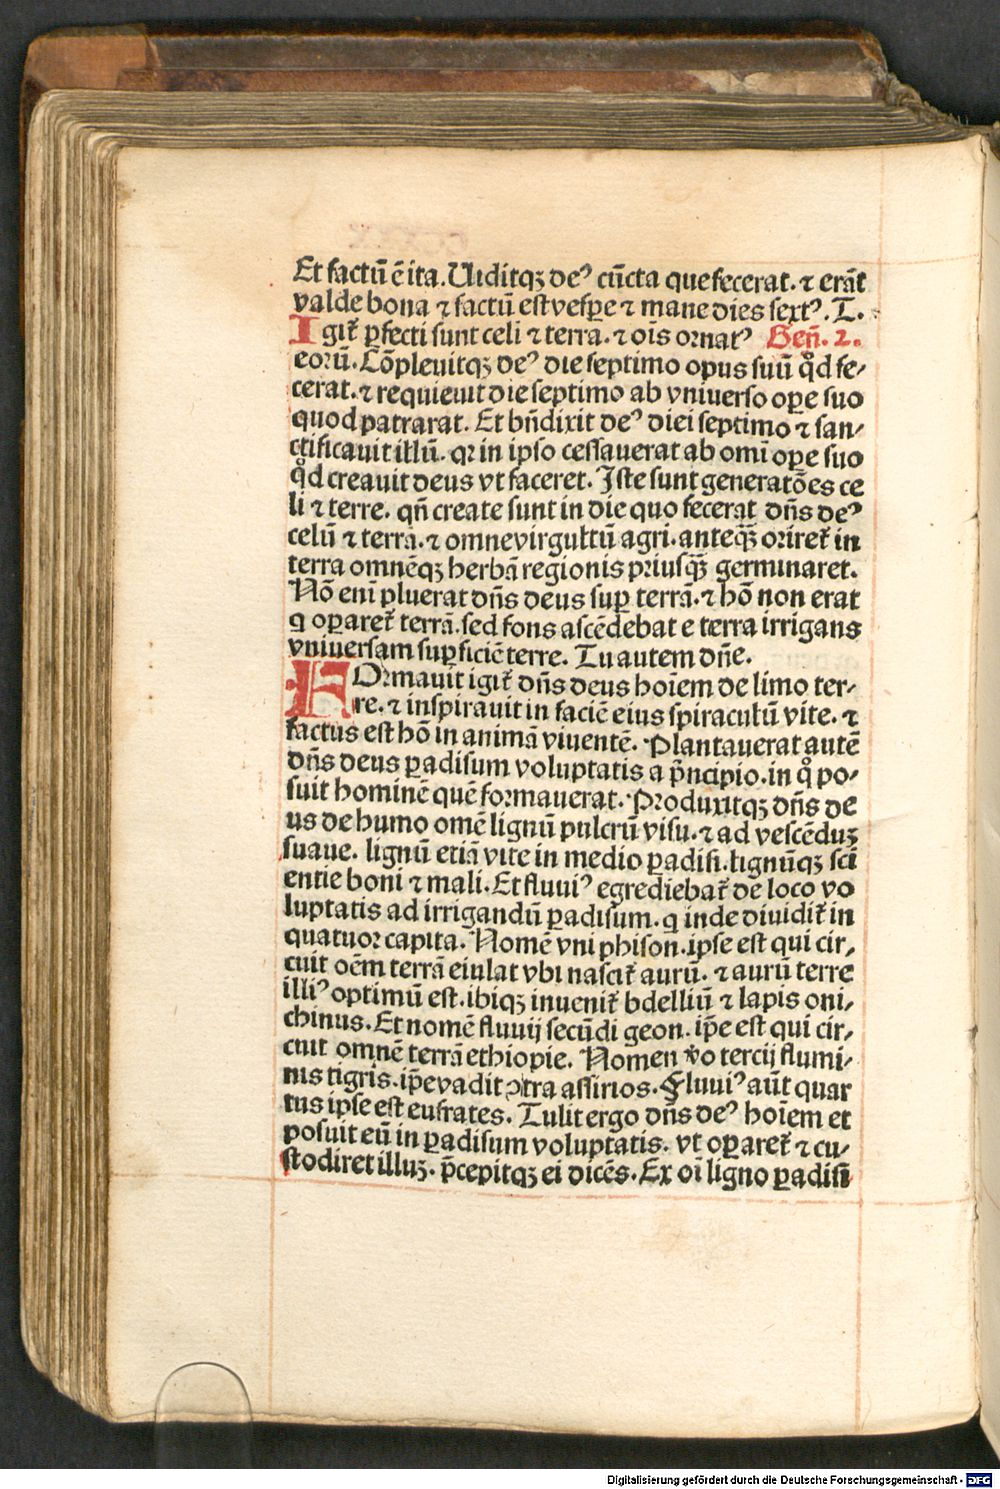 Et factū ē ita. Uiditqꝫ deꝰ cūcta que fecerat. ⁊ erāt
valde bona ⁊ factū est vesꝑe ⁊ mane dies sextꝰ. T.
Igit̄ ꝑfecti sunt celi ⁊ terra. ⁊ oīs ornatꝰ Geñ. 2.
eorū. Cōpleuitqꝫ deꝰ die septimo opus suū qd̊ fe⸗
cerat. ⁊ requieuit die septimo ab vniuerso oꝑe suo
quod patrarat. Et bn̄dixit deꝰ diei septimo ⁊ san⸗
ctificauit illū. qꝛ in ipso cessauerat ab omī oꝑe suo
qd̊ creauit deus vt faceret. Iste sunt generatōes ce
li ⁊ terre. qn̄ create sunt in die quo fecerat dn̄s deꝰ
celū ⁊ terrā. ⁊ omne virgultū agri. anteqꝫ̄ oriret̄ in
terra omnēqꝫ herbā regionis priusqꝫ̄ germinaret.
Nō enī pluerat dn̄s deus suꝑ terrā. ⁊ hō non erat
q oꝑaret̄ terrā. sed fons ascēdebat e terra irrigans
vniuersam suꝑficiē terre. Tu autem dn̄e.
FOrmauit igit̄ dn̄s deus hoīem de limo ter⸗
re. ⁊ inspirauit in faciē eius spiraculū vite. ⁊
factus est hō in animā viuentē. Plantauerat autē
dn̄s deus ꝑadisum voluptatis a pͥncipio. in qͦ po⸗
suit hominē quē formauerat. Produxitqꝫ dn̄s de
us de humo omē lignū pulcrū visu. ⁊ ad vescēduꝫ
suaue. lignū etiā vite in medio ꝑadisi. lignūqꝫ sci
entie boni ⁊ mali. Et fluuiꝰ egrediebat̄ de loco vo
luptatis ad irrigandū ꝑadisum. q inde diuidit̄ in
quatuor capita. Nomē vni phison. ipse est qui cir⸗
cuit oēm terrā eiulat vbi nascit̄ aurū. ⁊ aurū terre
illiꝰ optimū est. ibiqꝫ inuenit̄ bdelliū ⁊ lapis oni⸗
chinus. Et nomē fluuij secūdi geon. ip̄e est qui cir⸗
cuit omnē terrā ethiopie. Nomen v̊o tercij flumi⸗
nis tigris. ip̄e vadit ↄtra assirios. Fluuiꝰ aūt quar
tus ipse est eufrates. Tulit ergo dn̄s deꝰ hoīem et
posuit eū in ꝑadisum voluptatis. vt oꝑaret̄ ⁊ cu⸗
stodiret illuꝫ. p̄cepitqꝫ ei dicēs. Ex oī ligno ꝑadisi
Digitalisierung gefördert durch die Deutsche Forschungsgemeinschaft - DFG